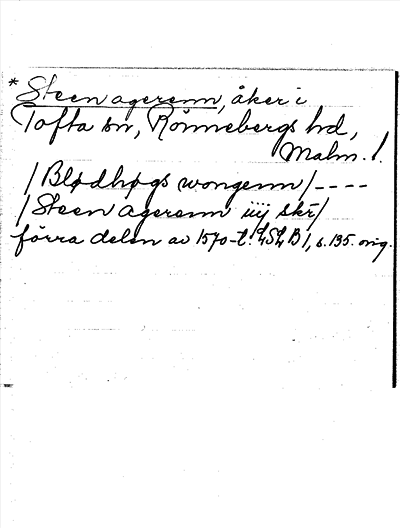 * Steen agerenn, åker i
Tofta sn, Rönnebergs hd,
Malm. l.
/Blødhøgs wongenn/----
/Steen agerenn iiij skr/
förra delen av 1570-t. LSLB 1, s. 135. orig.